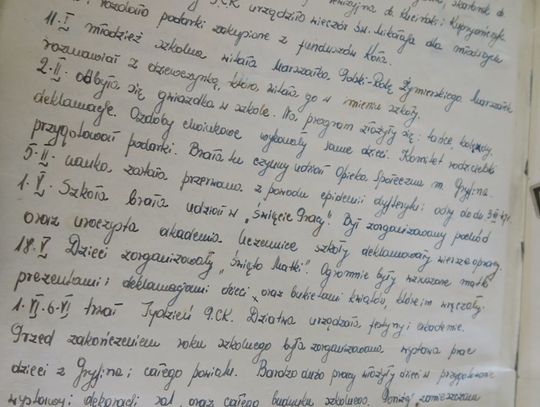 rewizyjna d. Kuciński i Kupryjańczyk
P.C.K. urządziło wieczór św. Mikołaja dla młodszych
rozdało podarki zakupione z funduszów Koła.
11.I młodzież szkolna witała Marszałka Polski Rolę Żymierskiego Marszałek
rozmawiał z dziewczynką, która witała go w imieniu szkoły.
2.II. odbyła się gwiazdka w szkole. Na program złożyły się: tańce kolędy,
deklamacje. Ozdoby choinkowe wykonały same dzieci. Komitet rodzicielski
przygotował podarki. Brała tu czynny udział Opieka Społeczna m. Gryfina.
5.II. nauka została przerwana z powodu epidemii dyfterytu; od do
1.V. Szkoła brała udział w "Święcie Pracy". Był zorganizowany pochód
oraz uroczysta akademia Uczennice szkoły deklamowały wiersze o pracy.
18.V Dzieci zorganizowały "Święto Matki". Ogromnie były wzruszone matki
prezentami i deklamacjami dzieci, oraz bukietami kwiatów, które im wręczały.
1.VI-6.VI trwał Tydzień P.CK. Dziatwa urządzała festyny i akademie.
Przed zakończeniem roku szkolnego była zorganizowana wystawa prac
dzieci z Gryfina i całego powiatu. Bardzo dużo pracy włożyły dzieci w przygotowanie
wystawy i dekoracji sal oraz całego budynku szkolnego. Poniżej zamieszczam